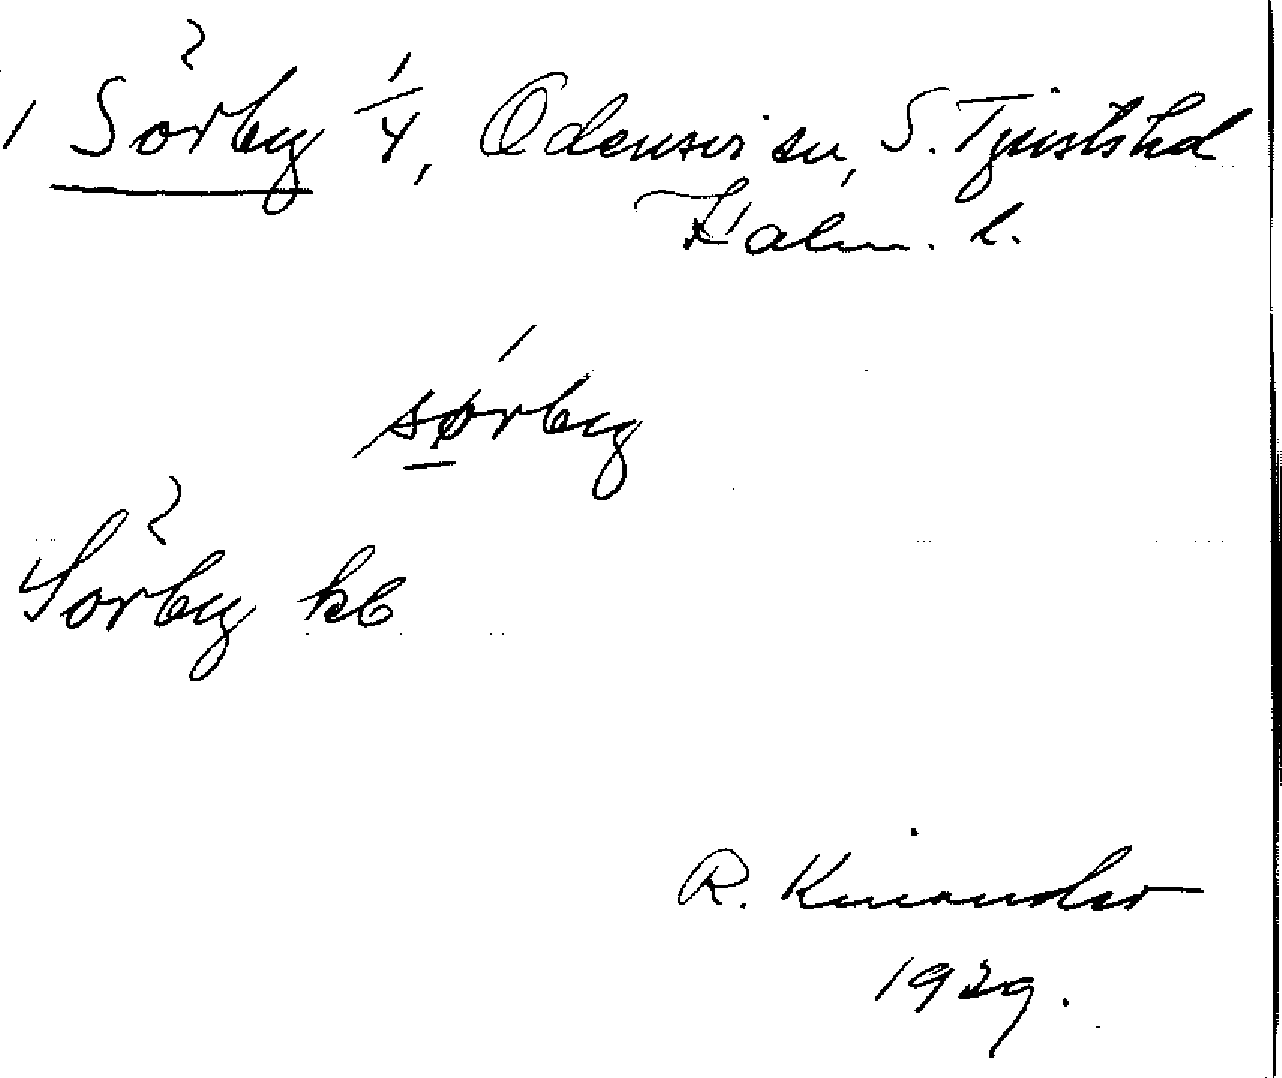 1 Sörby 1/4, Odensvi sn, S. Tjusts hd
Kalm. l.
sørby
Sörby kb
R. Kinander
1929.